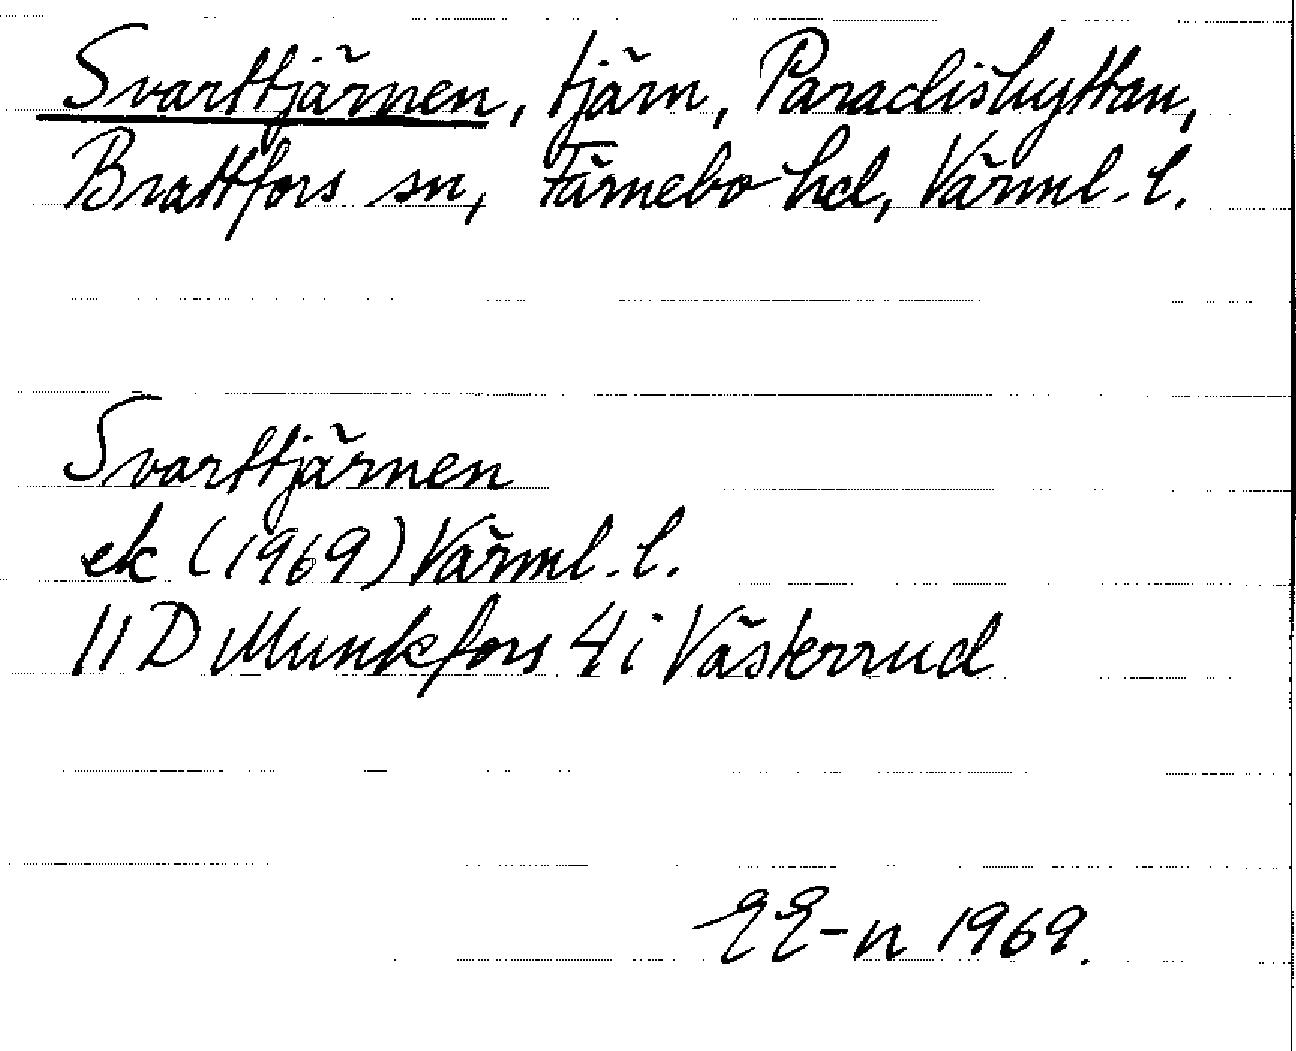 Svarttjärnen, tjärn, Paradishyttan,
Brattfors sn, Färnebo hd, Värml. l.
Svarttjärnen
ek (1969) Värml. l.
11 D Munkfors 4 i Västerrud
EE-n 1969.